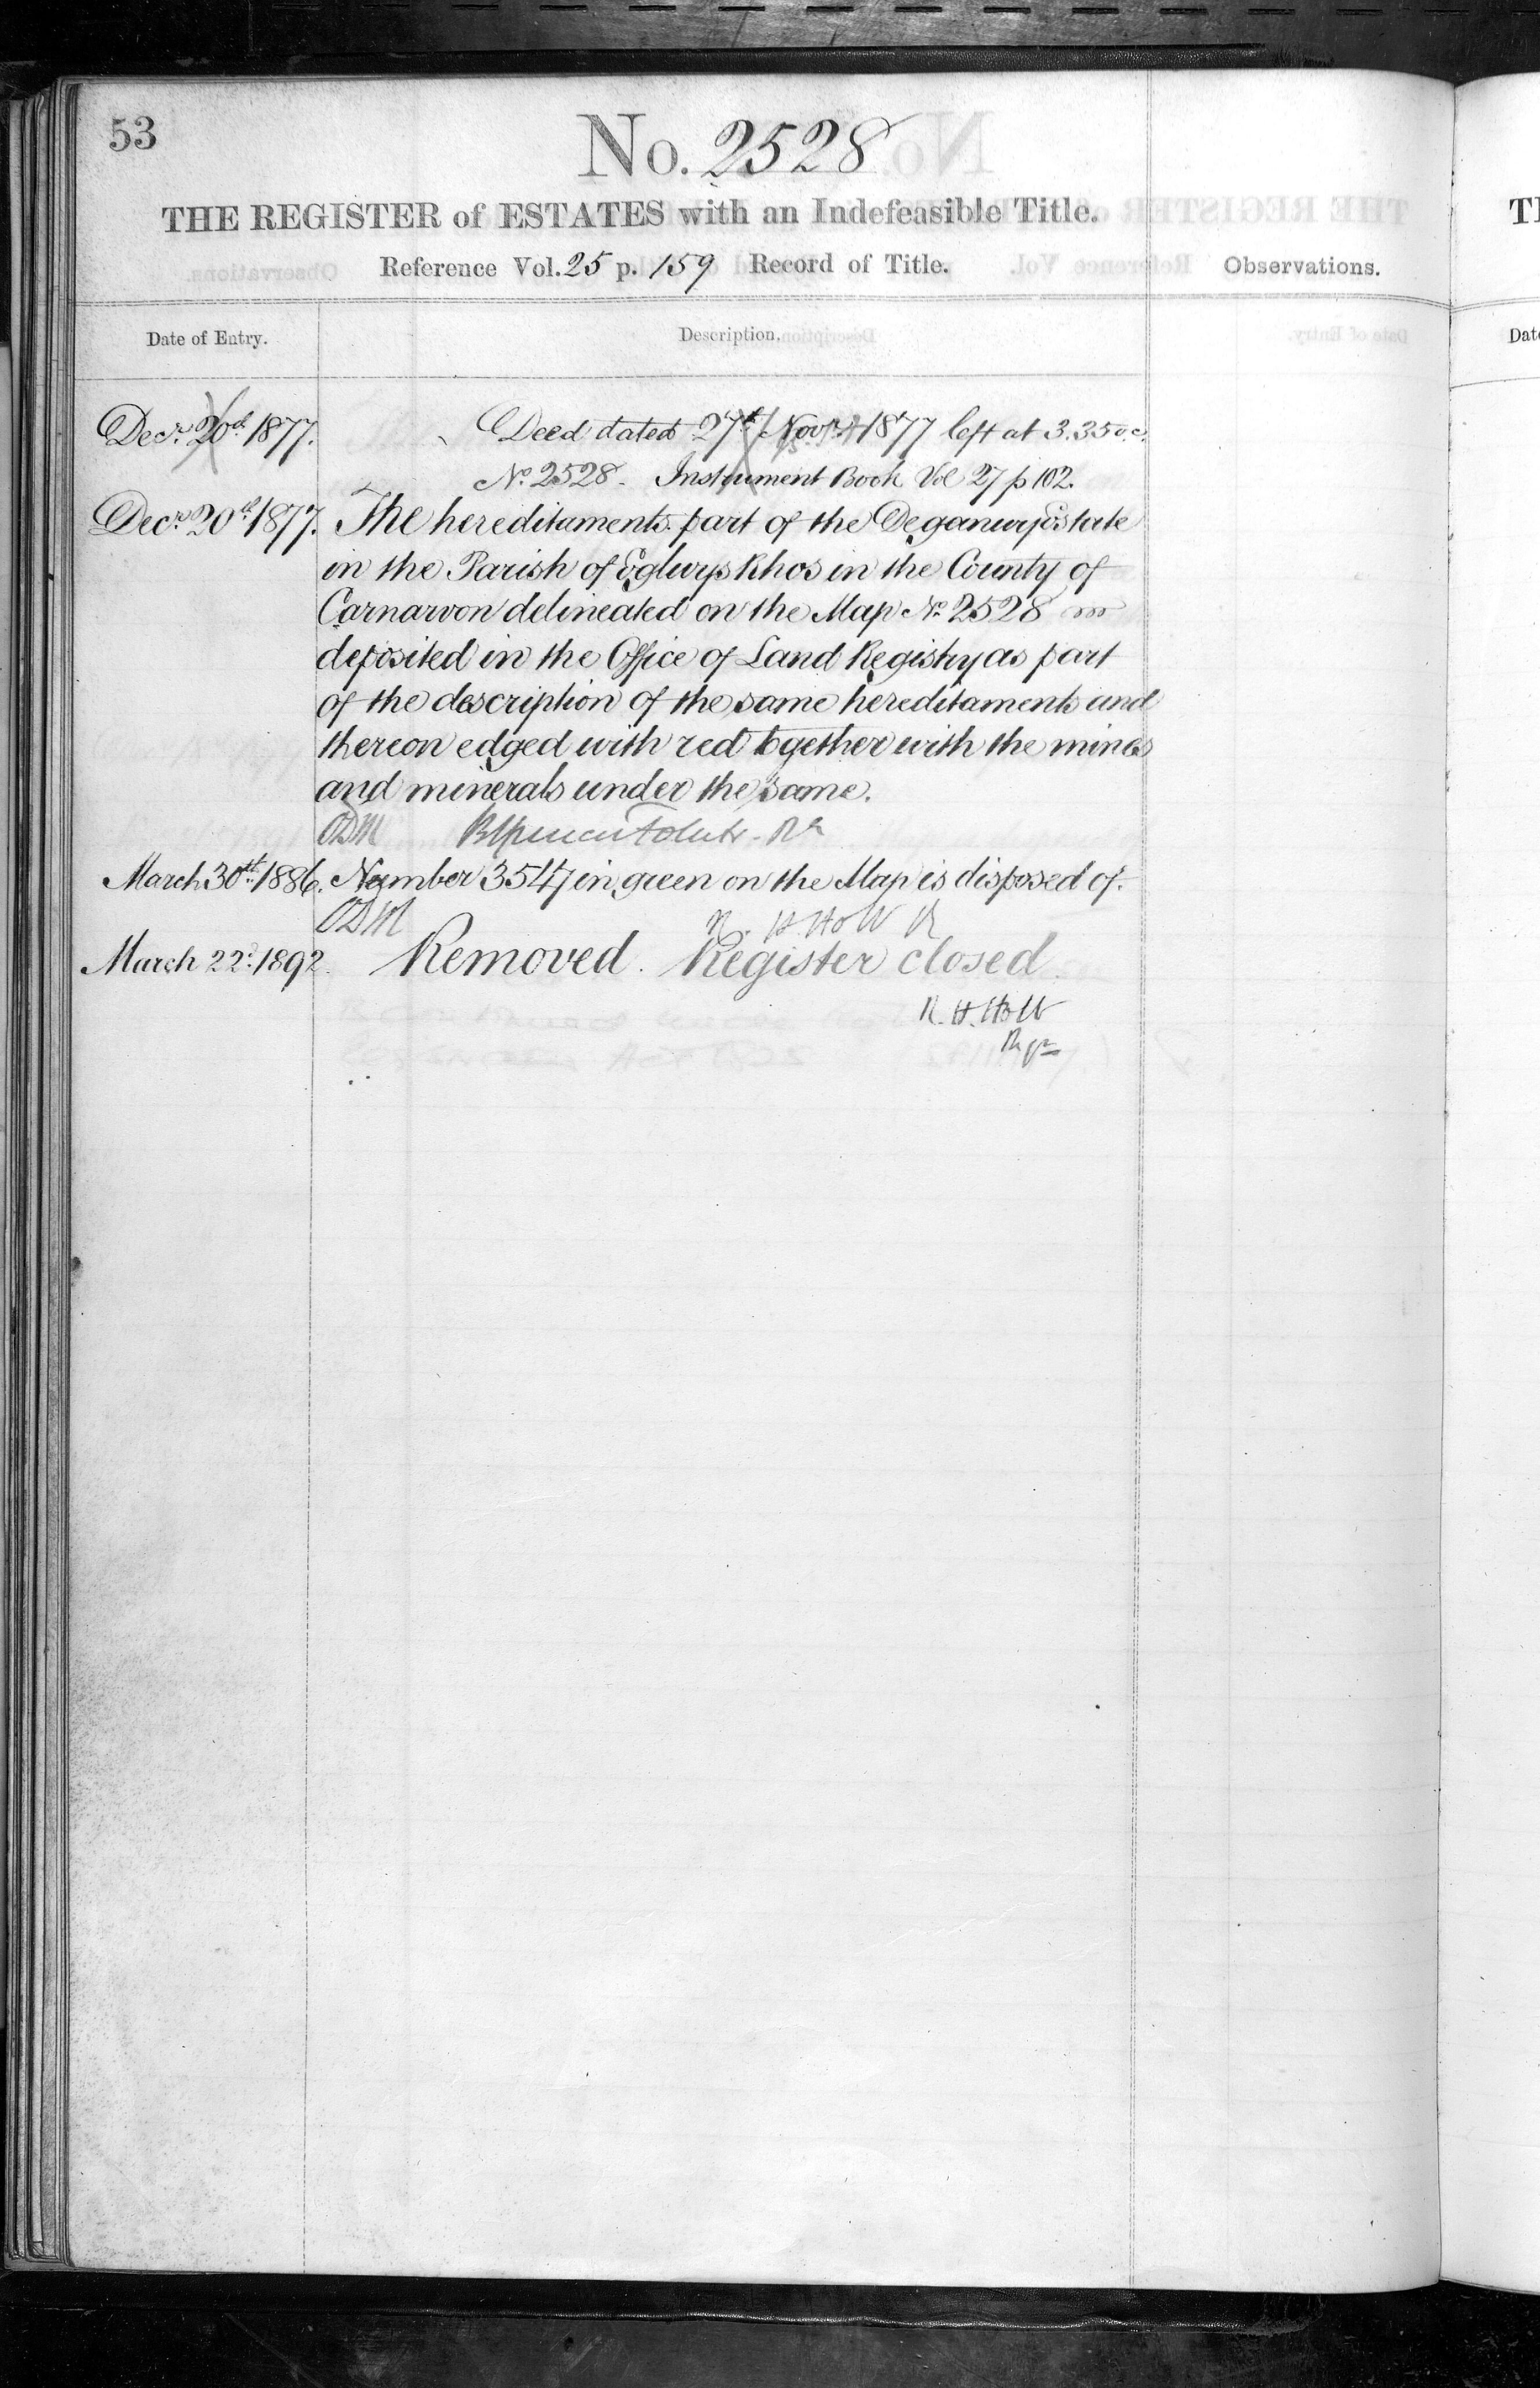 53
No. 2528
THE REGISTER of ESTATES with an Indefeasible Title.
Reference Vol. 25 p. 159 Record of Title.
Observations.
Date of Entry.
Description.
Decr. 20th 1877.
Deed dated 27th Novr. 1877 left at 3.35 o.c.
No. 2528. Instrument Book Vol 27 p 102.
Decr. 20th 1877. The hereditaments part of the Deganwy Estate
in the Parish of Eglwys Rhos in the County of
Carnarvon delineated on the Map No. 2528
deposited in the Office of Land Registry as part
of the description of the same hereditaments and
thereon edged with red together with the mines
and minerals under the same.
March 30th 1886. Number 3547 in green on the Map is disposed of.
R. H. Holt R
March 22d. 1892. Removed. Register closed.
R. H. Holt
Rgr